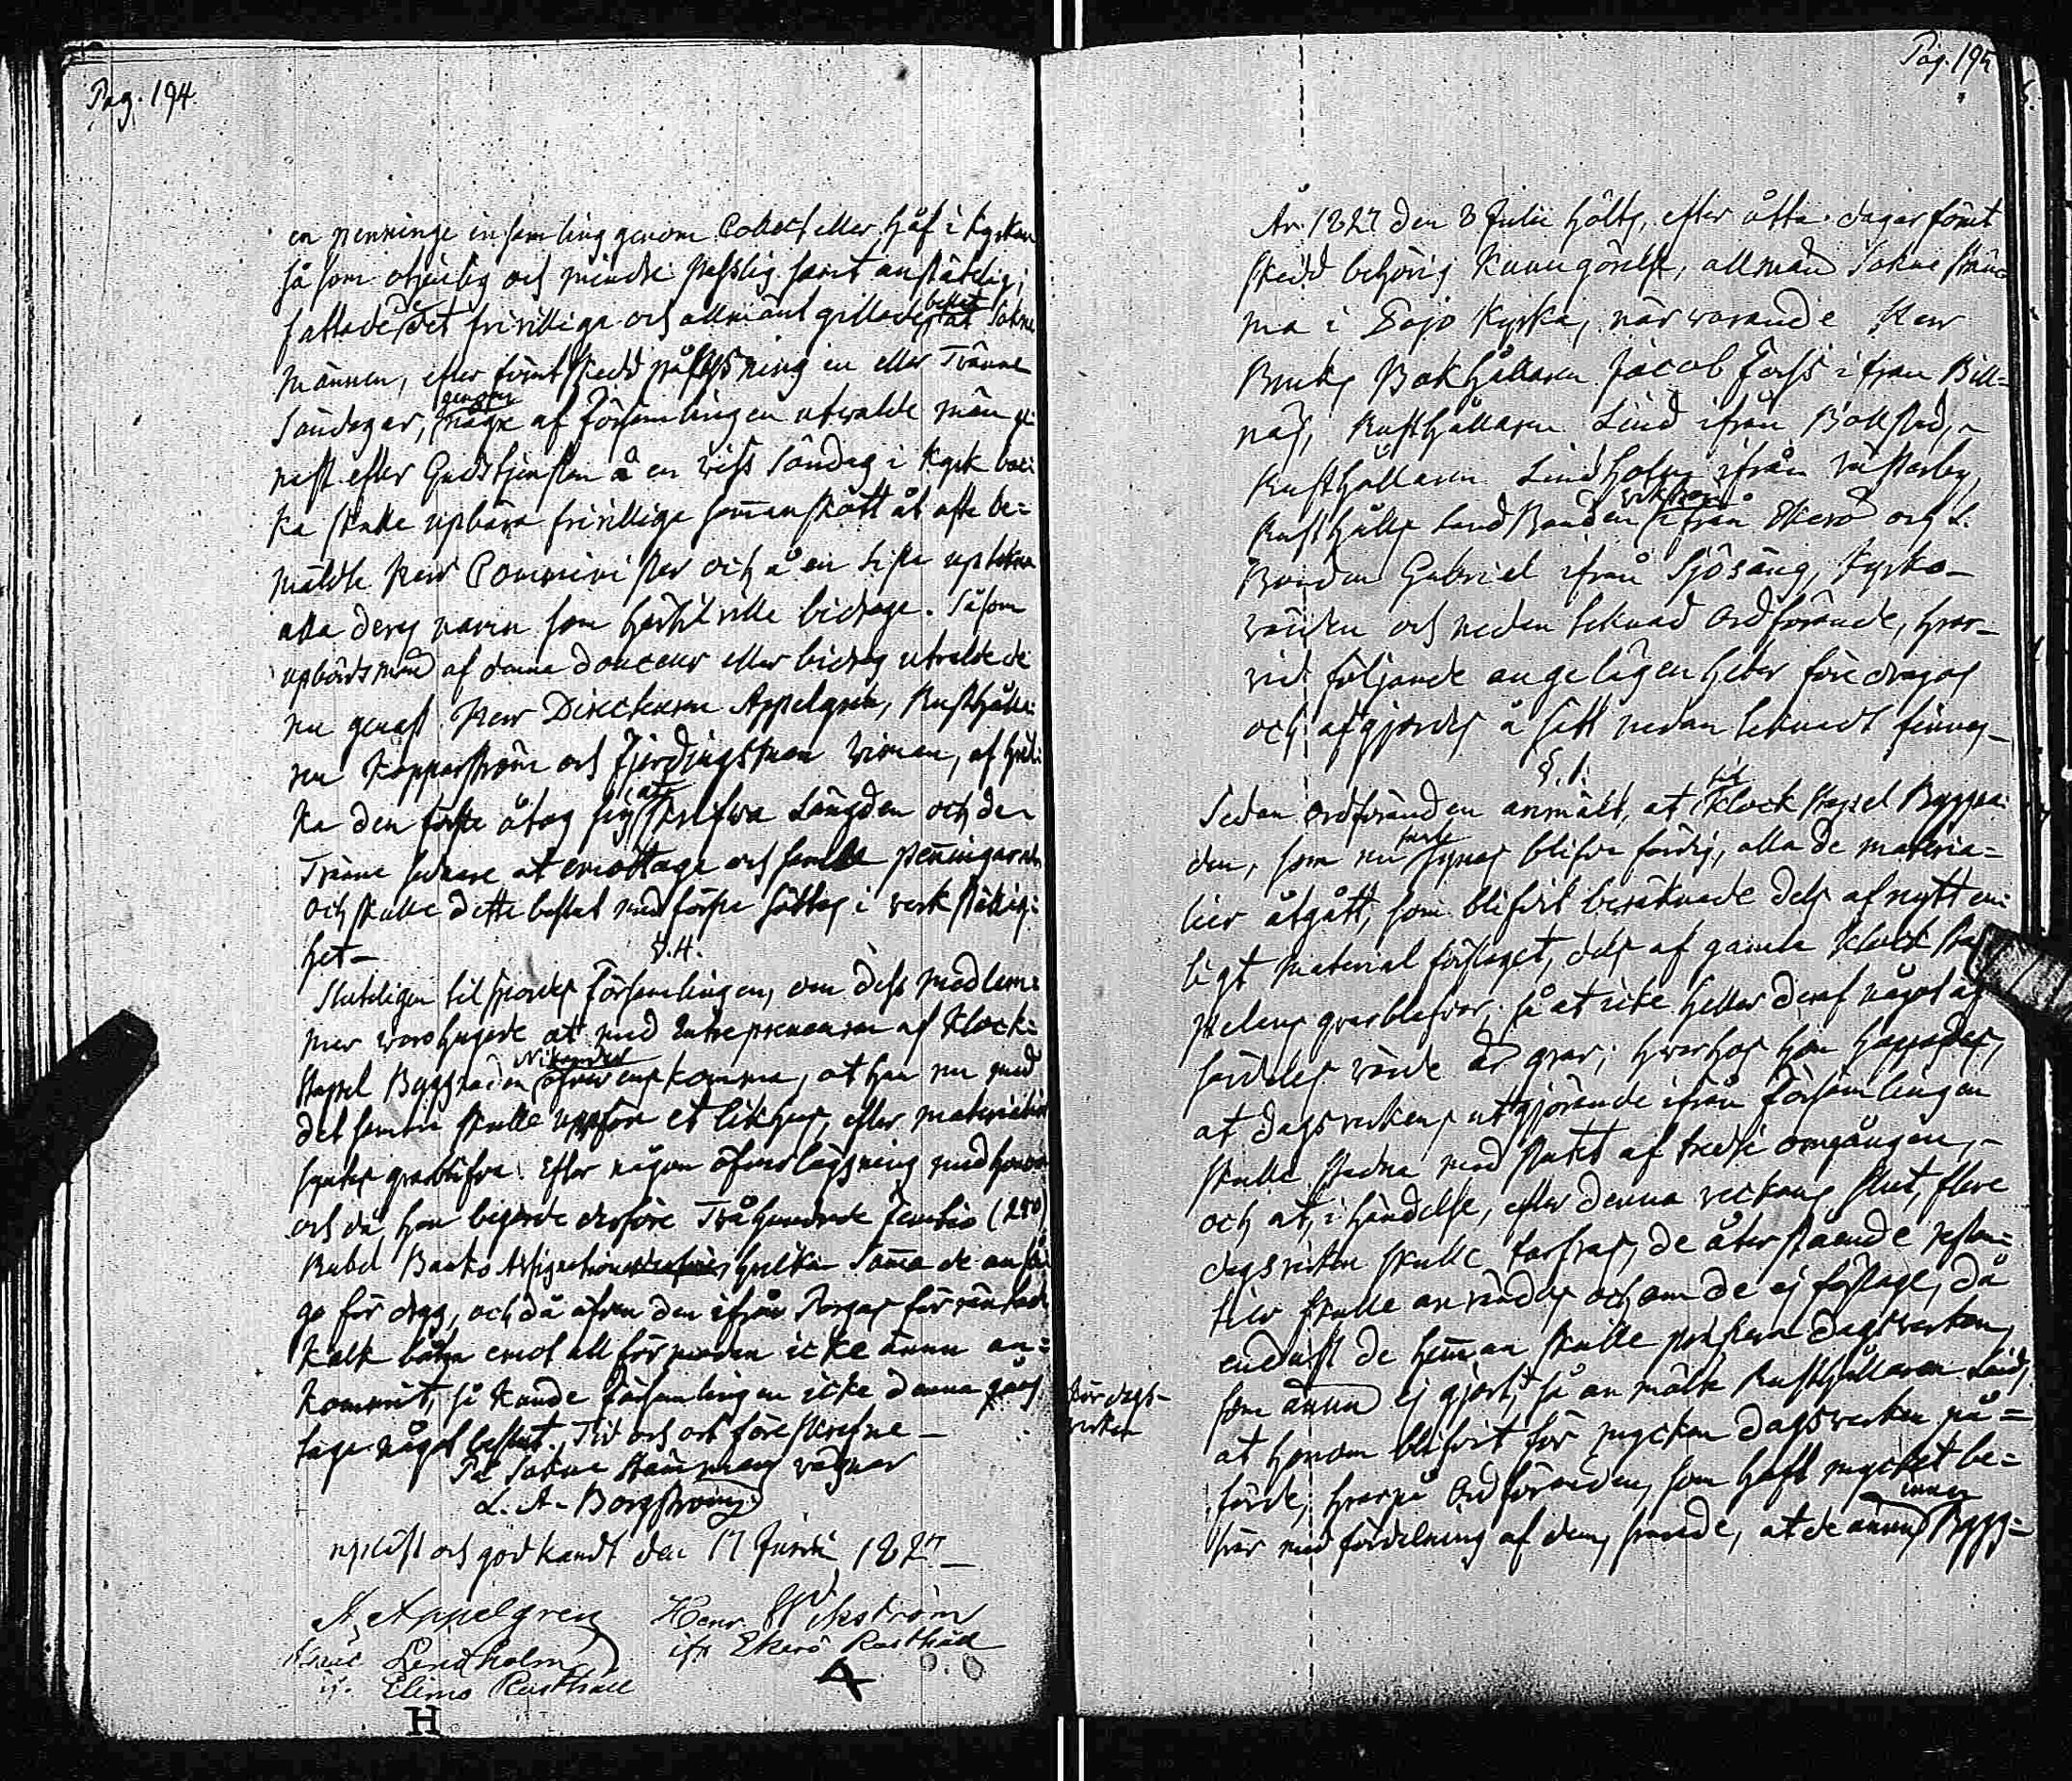 Pag. 194.
en penninge insamling genom Collect eller håf i Kyrkan
så som otjenlig och mindre passlig samt anständig;
fattade det frivilliga och allmänt gillade beslut at Sokne
männen, efter förut skedd påläsning en eller Tvänne
Söndagar, genom några af Församlingen utvalde män ge-
nast efter Gudstjensten å en viss Söndag i Kyrk
ka skulle upbära frivillige sammanskott åt ofta be=
mälde Herr Comminister och å en Lista upteckna
alla deras namn som härtil ville bidraga. Såsom
upbördsmän af denna douceur eller bidrag utvaldede
nu genast Herr Directeuren Appelgren, Rusthålla-
ren Kopparström och Fjerdingsman Viman, af hvil-
ka den förste åtog sig at skrifva Längden och de
Tvänne sednare at emottaga och samla penningarne
och skulle detta beslut med första sättas i verkställig-
het_
§.4.
Sluteligen tilspordes Församlingen, om dess medlem=
mar woro hugade att med Entreprenauren af Klock=
stapel Byggnaden Nikander öfverenskomma, at han nu med
det samma skulle uppföra et likhus, efter materialier
syntes qvarblifva. Efter någon öfverläggning med honom
och då han begärde derföre Två hundrade femtio (250)
Rubel Banko Assignationer hvilken Summa de ansåg
go för dryg, och då äfven den ifrån Pargas förväntade
Kalk båten emot all förmodan icke ännu an=
kommit, så kunde Församlingen icke denna gång
taga något beslut. Tid och ort föreskrefne_
På Sokne Stämmans vägnar
L. A. Borgström
upläst och godkändt den 17 Junii 1827_
A. Appelgren Henr Wikström
Lindholm ifr Ekerö Rusthåll
if. Elimo Rusthåll
H
Pag. 195
År 1827 den 8 Julii hölts, efter åtta dagar förut
skedd behörig Kunngörelse, allmän Sokne stäm=
ma i Bojo Kyrka, närvarande Herr
Bruks Bokhållaren Jacob Forss ifrån Bill=
näs, Rusthållaren Lind ifrån Bollstad,
Rusthållaren Lindholm ifrån Västerby,
Rusthålls Land Bonden Wikström ifrån Ekerö och L.
Bonden Gabriel ifrån Sjösäng, Kyrko-
värden och nedan teknad Ordförande, hvar-
vid följande angelägenheter föredragos
och afgjordes å sätt nedan teknadt finnes_
§.1.
Sedan Ordföranden anmält, at til Klockstapel Byggna-
den, som nu snart synes blifva färdig, alla de materia=
lier åtgått, som blifvit beräknade dels af nytt en-
ligt Material förslaget, dels af gamla Klock sta
pelens qvarblefvor; så at icke heller deraf något af
särdeles värde är qvar; hvarhos han hoppades,
at dagsverkens utgjörande ifrån Församlingen
skulle stadna med slutet af tredje omgången,
och at, i händelse, efter denna veckans slut, flere
dagsverken skulle tarfvas, de återståendе restan=
tier skulle användas och om de ej förslage, då
endast de hemman skulle prestera dagsverken
som ännu ej gjort; så anmälte Rusthållaren Lind,
at honom blifvit för mycken dagsverken på=
förde, hvarpå Ordföranden, som haft mycket be=
svär med fördelning af dem, svarade, at de ännu innan Bygg=
Kör dags-
verken